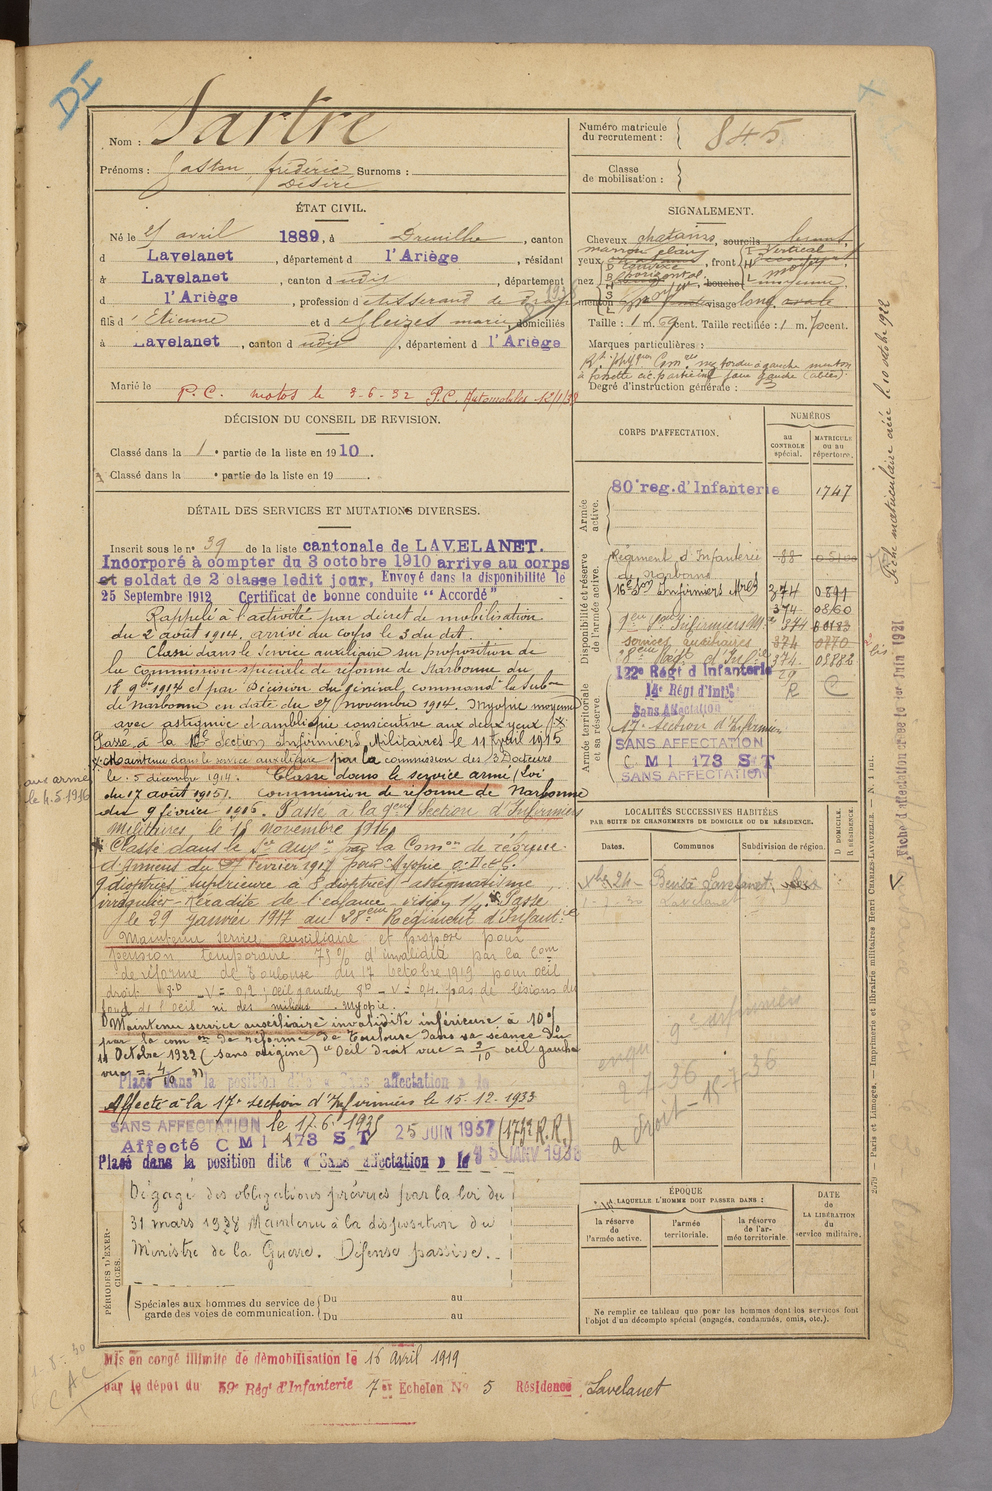 DI
Nom : Sartre
Prénoms : Gaston, frédéric Surnoms :
Désiré
Numéro matricule
du recrutement : 845
Classe
de mobilisation :
ÉTAT CIVIL.
Né le avril 1889, à Dreuilhe, canton
d Lavelanet, département d l'Ariège, résidant
à Lavelanet, canton d udit, département
d l'Ariège, profession d tisserand de drap
fils d' Etienne et d Gleizes marie, domiciliés
à Lavelanet, canton d udit, département d l'Ariège
Marié le
P.C. motos le 3-6-32 P.C. Automobiles 12/1/38
SIGNALEMENT.
Cheveux chatains, sourcils bruns
marron clairs
yeux chatains, front Vertical
nez horizontal, bouche moyenne
menton visage long ovale
Taille : 1 m. 69 cent. Taille rectifiée : 1 m. 70 cent.
Marques particulières :
à fossette cic. partie inf. joue gauche
Degré d'instruction générale : 3
DÉCISION DU CONSEIL DE REVISION.
Classé dans la 1e partie de la liste en 1910.
Classé dans la e partie de la liste en 19 .
DÉTAIL DES SERVICES ET MUTATIONS DIVERSES.
Inscrit sous le n° 39 de la liste cantonale de LAVELANET.
Incorporé à compter du 3 octobre 1910 arrive au corps
et soldat de 2 classe ledit jour, Envoyé dans la disponibilité le
25 Septembre 1912 Certificat de bonne conduite "Accordé"
Rappelé à l'activité par décret de mobilisation
du 2 août 1914. arrivé au corps le 3 du dit.
Classé dans le Service auxiliaire sur proposition de
la Commission spéciale de réforme de Narbonne du
18 9bre 1914 et par Décision du général command la Subon
de Narbonne en date du 27 novembre 1914. Myopie moyenne
avec astigmie et amblyopie consécutive aux deux yeux
Passé à la 16e Section Infirmiers Militaires le 11 Avril 1915
x Maintenu dans le service auxiliaire par la commission des 3 Docteurs
le 5 décembre 1914. Classé dans le service armé (Loi
du 17 août 1915). Commission de réforme de Narbonne
du 9 février 1916. Passé à la 9eme Section d'Infirmiers
Militaires le 18 novembre 1916
aux armées
le 4.5 1916
Classé dans le Sce Auxre par la Comon de réforme
d'Amiens du février 1917 pour Myopie O.D. et G.
9 dioptries supérieure à 8 dioptries - astigmatisme
irrégulier - Kératite de l'enfance, vision 1/ . Passé
le 29 janvier 1917 au 88eme Régiment d'Infantie
Maintenu service auxiliaire et proposé pour
pension temporaire 75% d'invalidité par la Com
de réforme de Toulouse du 17 Octobre 1919 pour oeil
droit 8D - V = 0,2 ; oeil gauche 8D - V = 0,4 pas de lésions du
fond de l'oeil ni des milieux. Myopie.
Maintenu service auxiliaire invalidité inférieure à 10%
par la com on de réforme de Toulouse dans sa séance du
11 Octobre 1922 (sans origine) "Oeil droit vue = 2/10 oeil gauche
vue = 4/10 "
Placé dans la position dite « Sans affectation » le
Affecté à la 17e section d'Infirmiers le 15-12-1933
SANS AFFECTATION le 17.6.1935
25 JUIN 1937 (173e R.R.)
Affecté C M I 173 S T
Placé dans la position dite « Sans affectation » le 5 JANV 1938
Dégagé des obligations prévues par la loi du
31 mars 1928 Maintenu à la disposition du
Ministre de la Guerre. Défense passive.
PÉRIODES D'EXERCICES.
Spéciales aux hommes du service de
garde des voies de communication.
Du au
Du au
CORPS D'AFFECTATION.
NUMÉROS
au
CONTROLE
spécial.
MATRICULE
ou au
répertoire.
Armée
active.
80e reg. d'Infanterie 1747
Disponibilité et réserve
de l'armée active.
Régiment d'Infanterie 88
de Narbonne
16e Son Infirmiers Mres 374 0891
374 0860
9eme Son Infirmiers Mre 374
services auxiliaires 374 0870
88eme Régt d'Infie 374 03882
Armée territoriale
et sa réserve.
122e Régt d'Infanterie
14e Régt d'Inf
Sans Affectation
17e section d'Infirmiers
SANS AFFECTATION
C M I 173 S T
SANS AFFECTATION
LOCALITÉS SUCCESSIVES HABITÉES
PAR SUITE DE CHANGEMENTS DE DOMICILE OU DE RÉSIDENCE.
Dates.
Communes
Subdivision de région.
D DOMICILE.
R RÉSIDENCE.
Lavelanet
1-7-30 Lavelanet
2-7-36
15-7-36
a droit
ÉPOQUE
A LAQUELLE L'HOMME DOIT PASSER DANS :
la réserve
de
l'armée active.
l'armée
territoriale.
la réserve
de l'armée territoriale.
DATE
de
LA LIBÉRATION
du
service militaire.
Ne remplir ce tableau que pour les hommes dont les services font
l'objet d'un décompte spécial (engagés, condamnés, omis, etc.).
Fiche matriculaire créée le 10 octobre 1922
Fiche d'affectation créée le 1er Juin 1931
2079 — Paris et Limoges. — Imprimerie et librairie militaires Henri CHARLES-LAVAUZELLE. — N. 1 int.
Mis en congé illimité de démobilisation le 16 Avril 1919
par le dépôt du 59e Régt d'Infanterie 7er Echelon No 5 Résidence Lavelanet
1-8-30
CAC